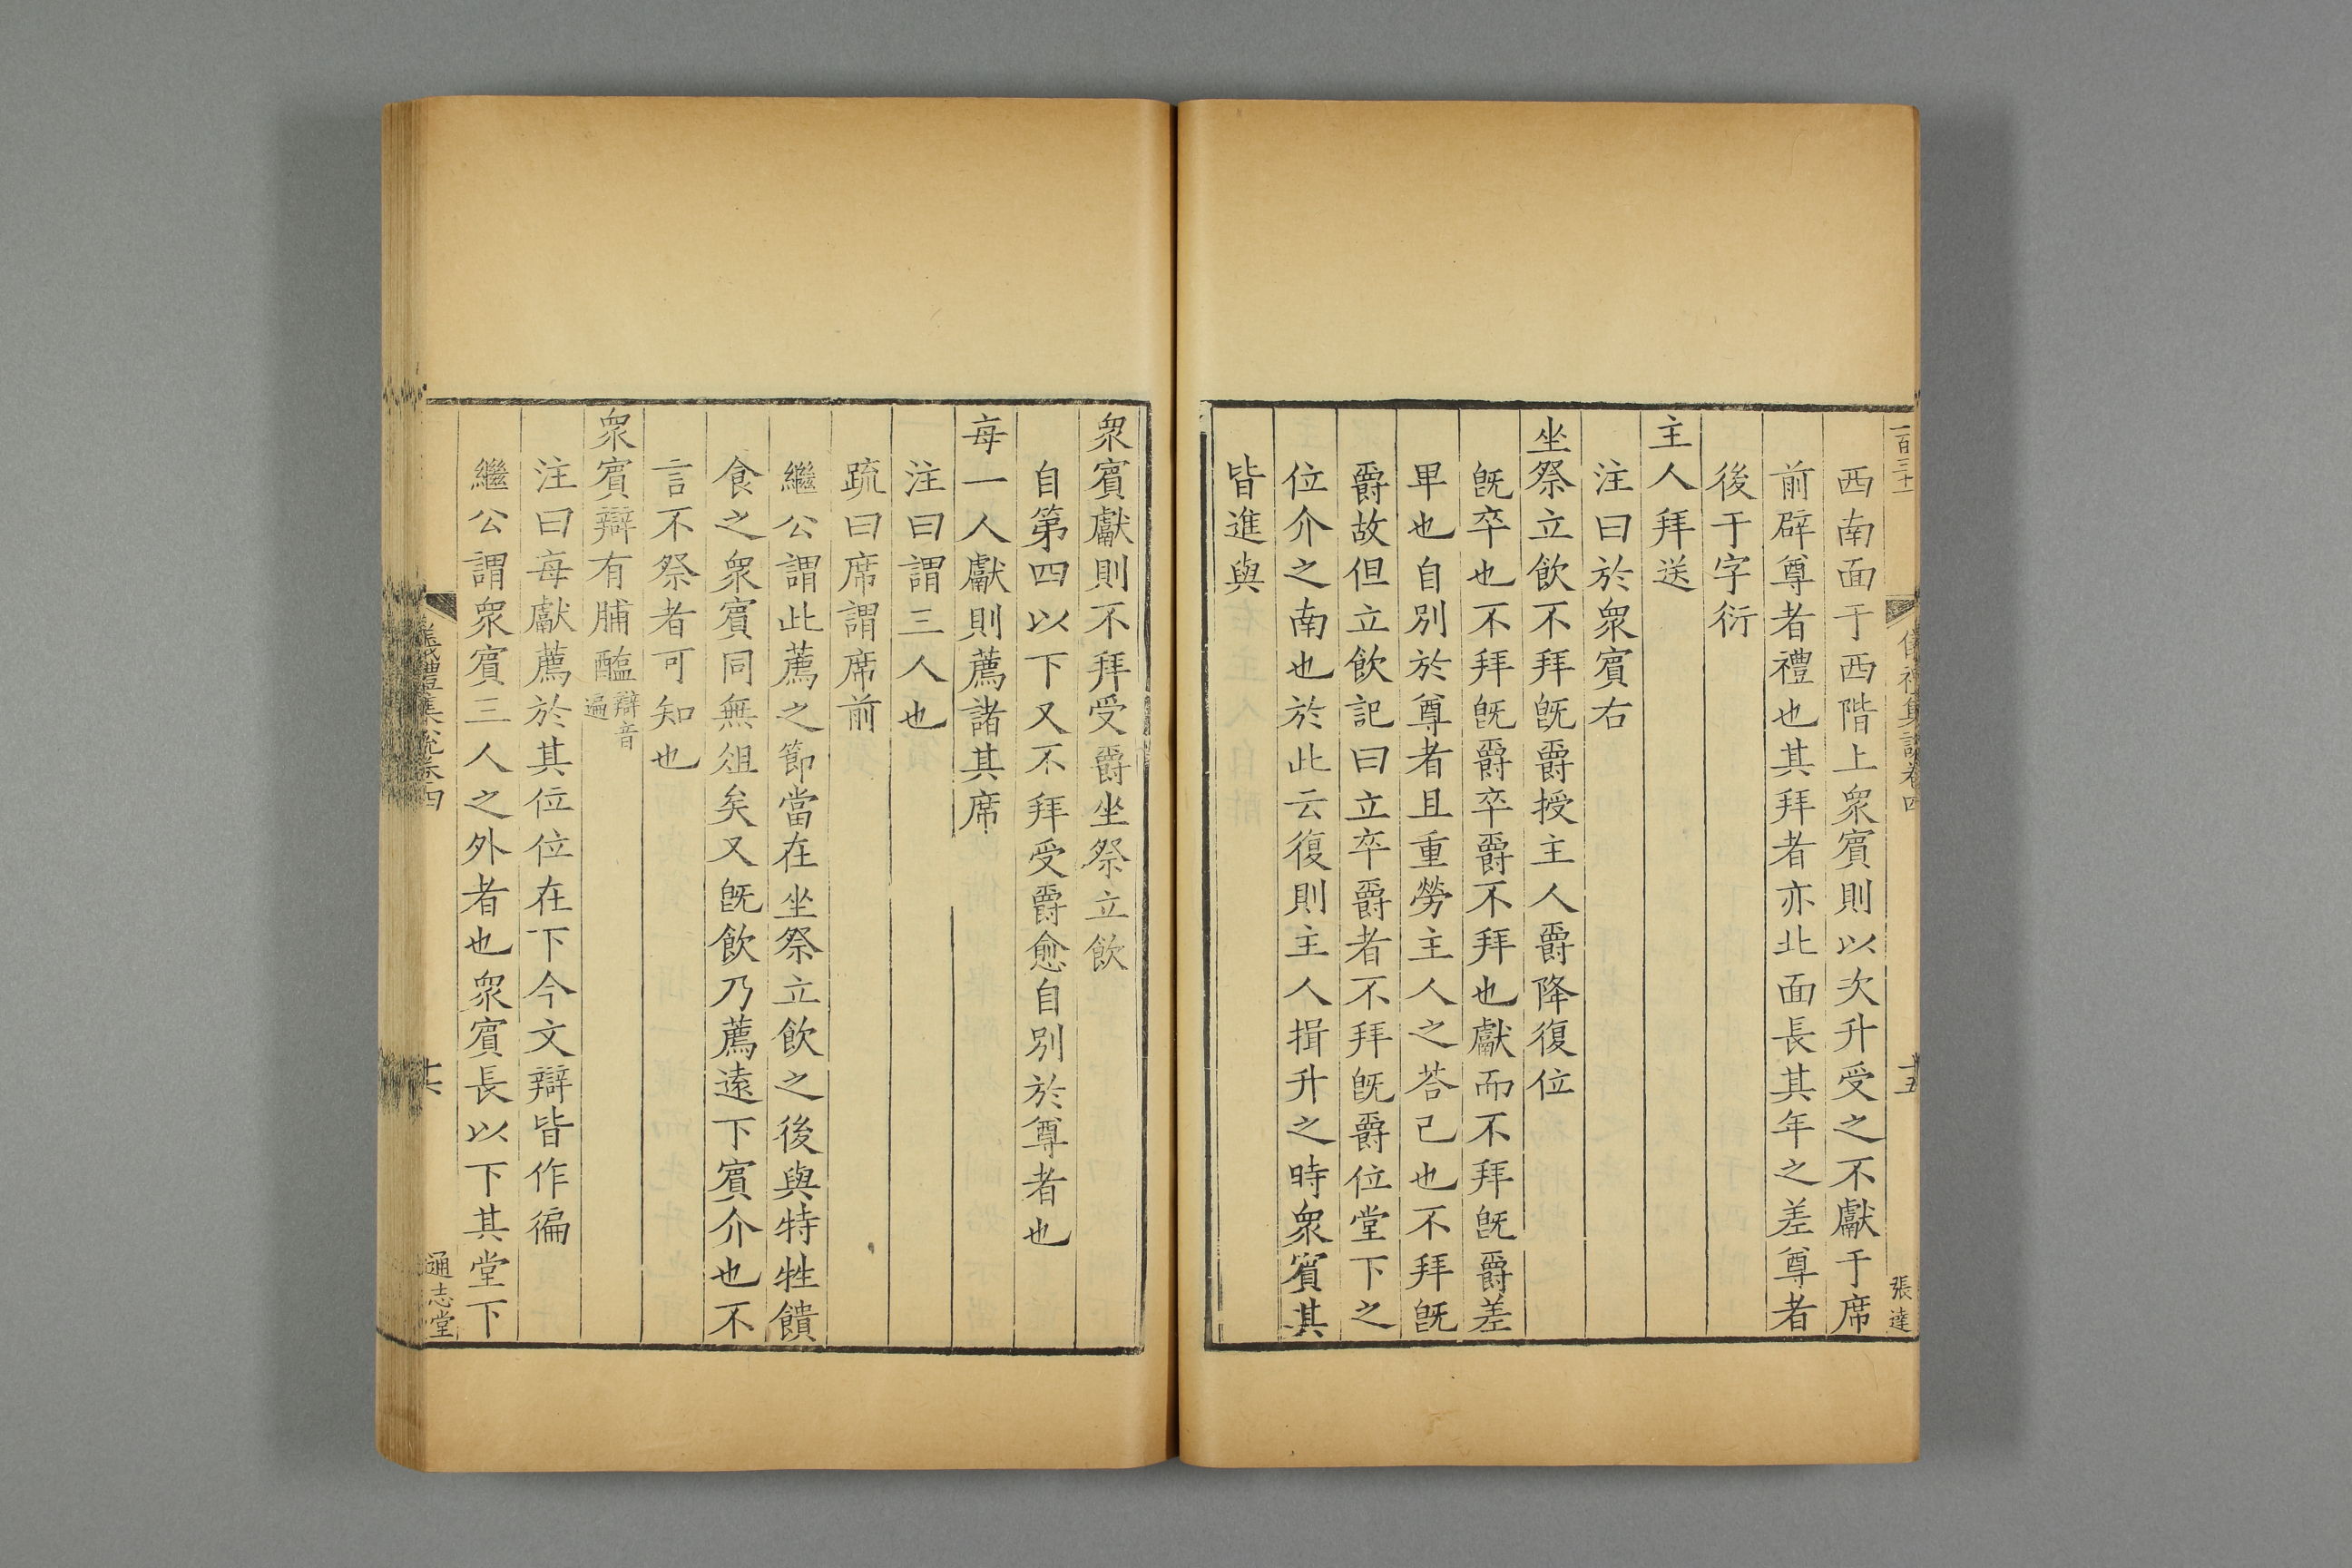 一百三十一
儀禮集說卷四
十五
張達
西南面于西階上衆賓則以次升受之不獻于席
前辟尊者禮也其拜者亦北面長其年之差尊者
後于字衍
主人拜送
注曰於衆賓右
坐祭立飲不拜旣爵授主人爵降復位
旣卒也不拜旣爵卒爵不拜也獻而不拜旣爵差
畢也自別於尊者且重勞主人之荅己也不拜旣
爵故但立飲記曰立卒爵者不拜旣爵位堂下之
位介之南也於此云復則主人揖升之時衆賓其
皆進與
衆賓獻則不拜受爵坐祭立飲
自第四以下又不拜受爵愈自別於尊者也
每一人獻則薦諸其席
注曰謂三人也
疏曰席謂席前
繼公謂此薦之節當在坐祭立飲之後與特牲饋
食之衆賓同無俎矣又旣飲乃薦遠下賓介也不
言不祭者可知也
衆賓辯有脯醢辯音遍
注曰每獻薦於其位位在下今文辯皆作徧
繼公謂衆賓三人之外者也衆賓長以下其堂下
儀禮集說卷四
十六
通志堂